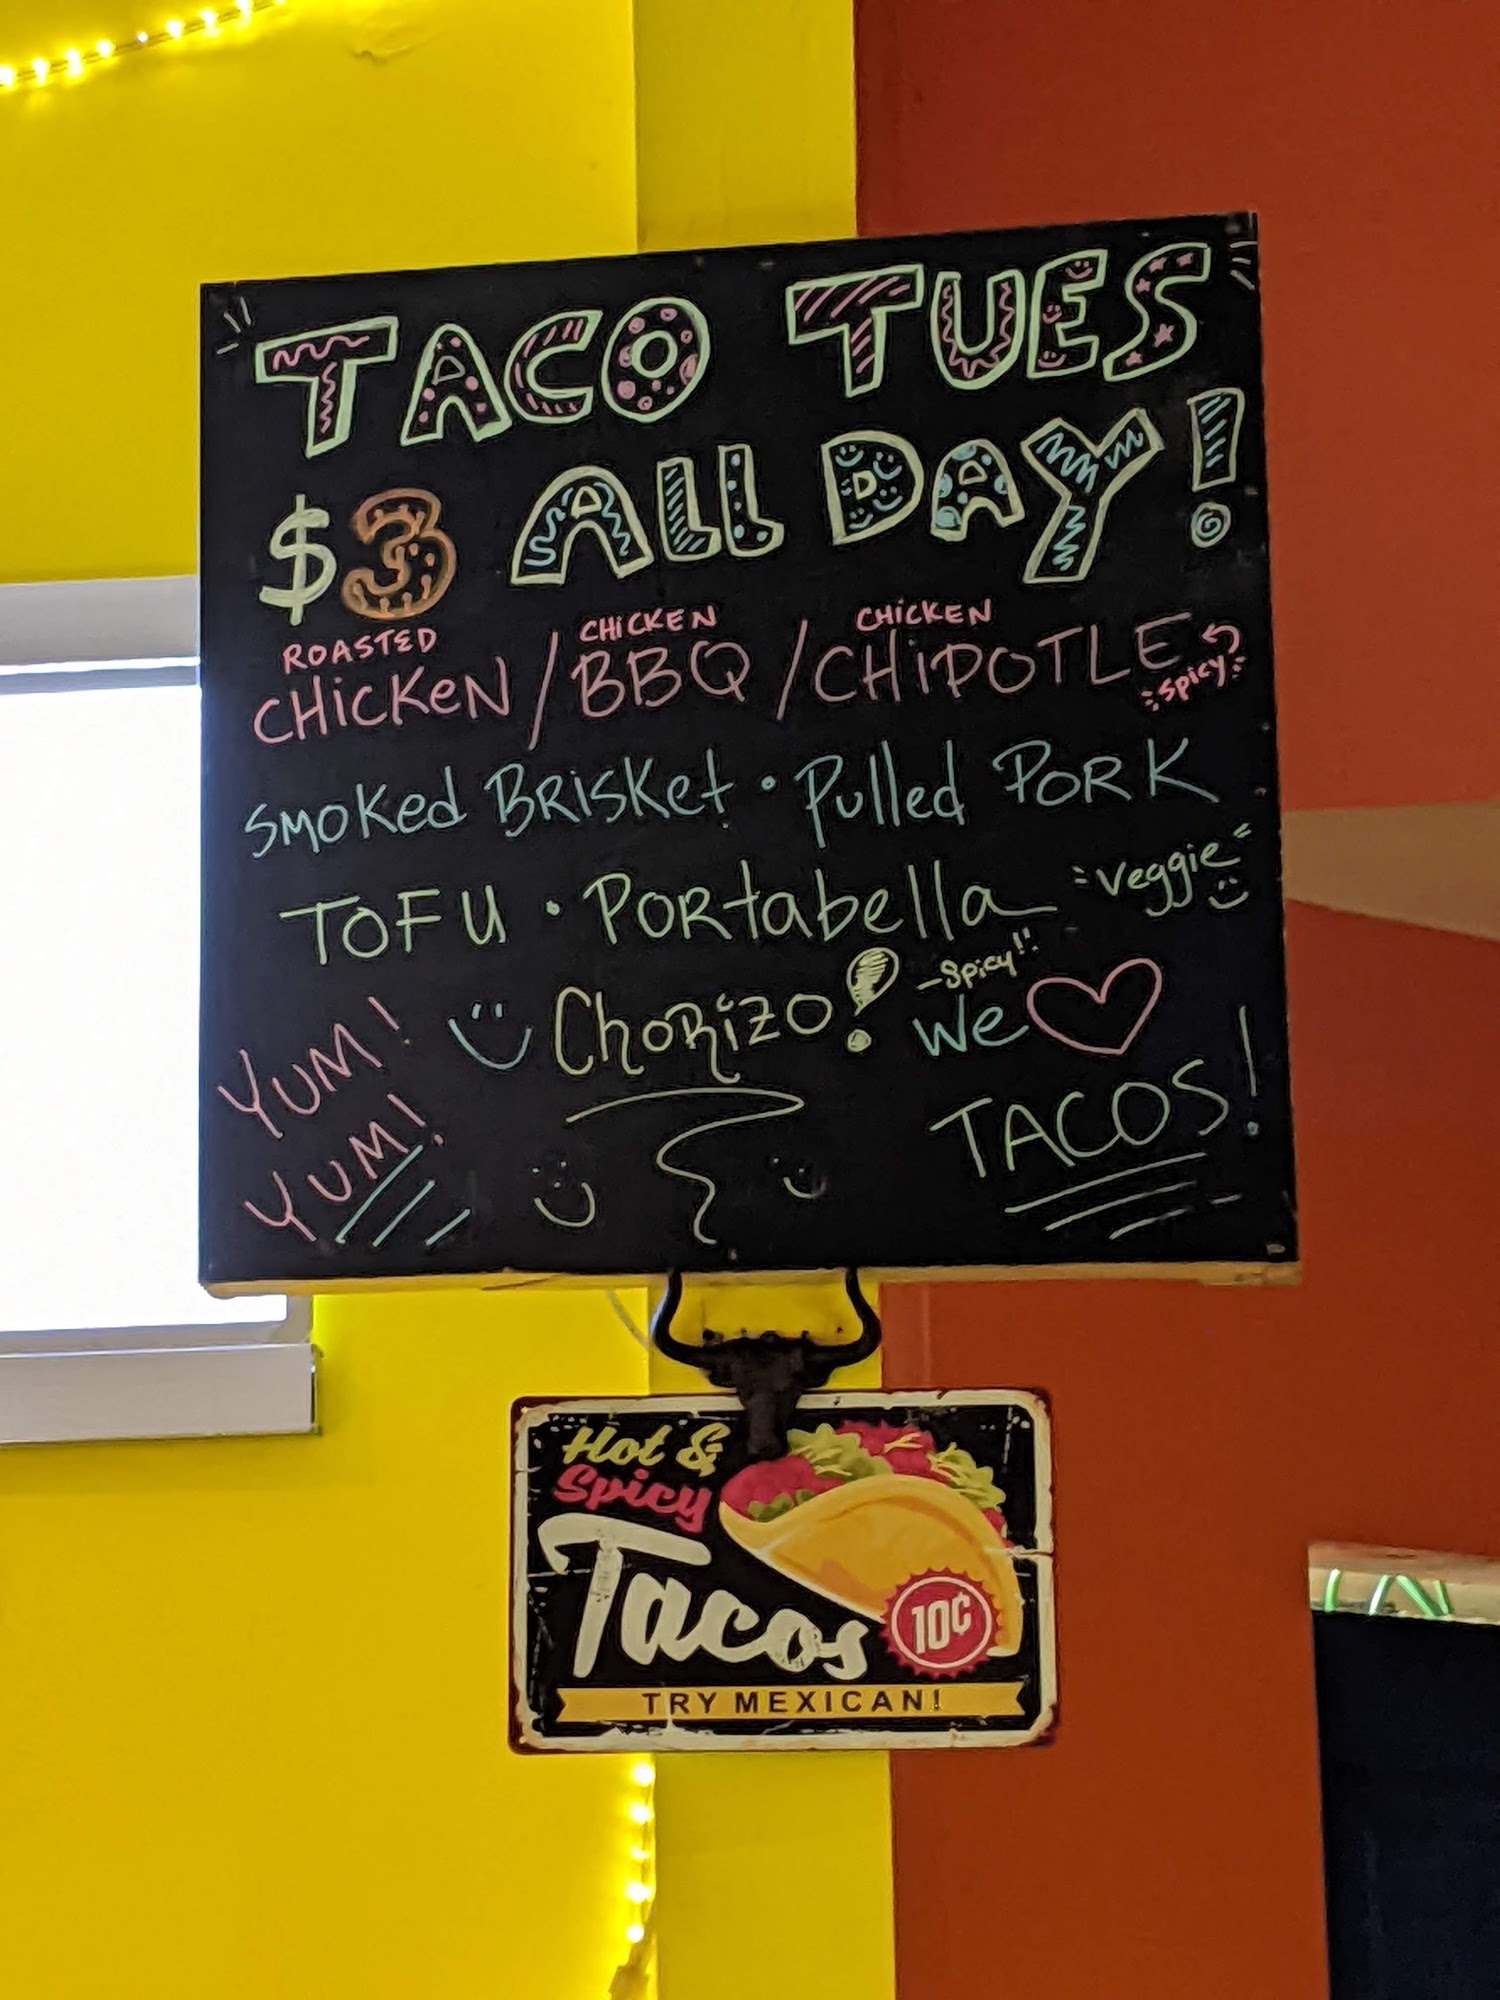 TACO TUES
$3 ALL DAY!
ROASTED CHICKEN / CHICKEN BBQ / CHICKEN CHIPOTLE
spicy
SMOKed BRISKet • Pulled PORK
TOFU • PORtabella veggie
CHORIZO! spicy!!
YUM!
YUM!
We ♡
TACOS!
Hot &
Spicy
Tacos
10¢
TRY MEXICAN!